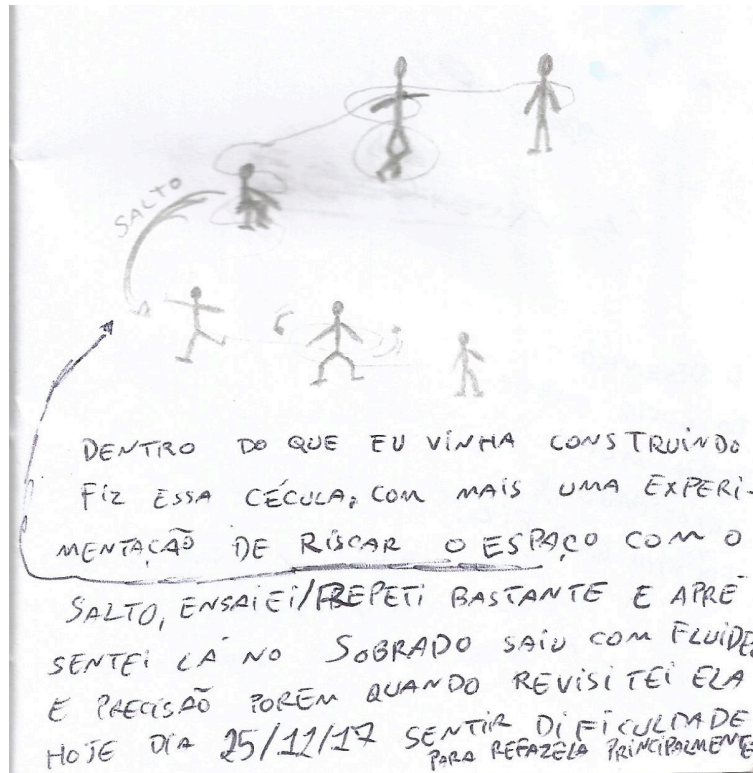 SALTO
DENTRO DO QUE EU VINHA CONSTRUINDO
FIZ ESSA CÉCULA, COM MAIS UMA EXPERI-
MENTAÇÃO DE RISCAR O ESPAÇO COM O
SALTO, ENSAIEI/REPETI BASTANTE E APRE-
SENTEI LÁ NO SOBRADO SAIU COM FLUIDEZ
E PRECISÃO POREM QUANDO REVISITEI ELA
HOJE DIA 25/11/17 SENTIR DIFICULDADE
PARA REFAZELA PRINCIPALMENTE